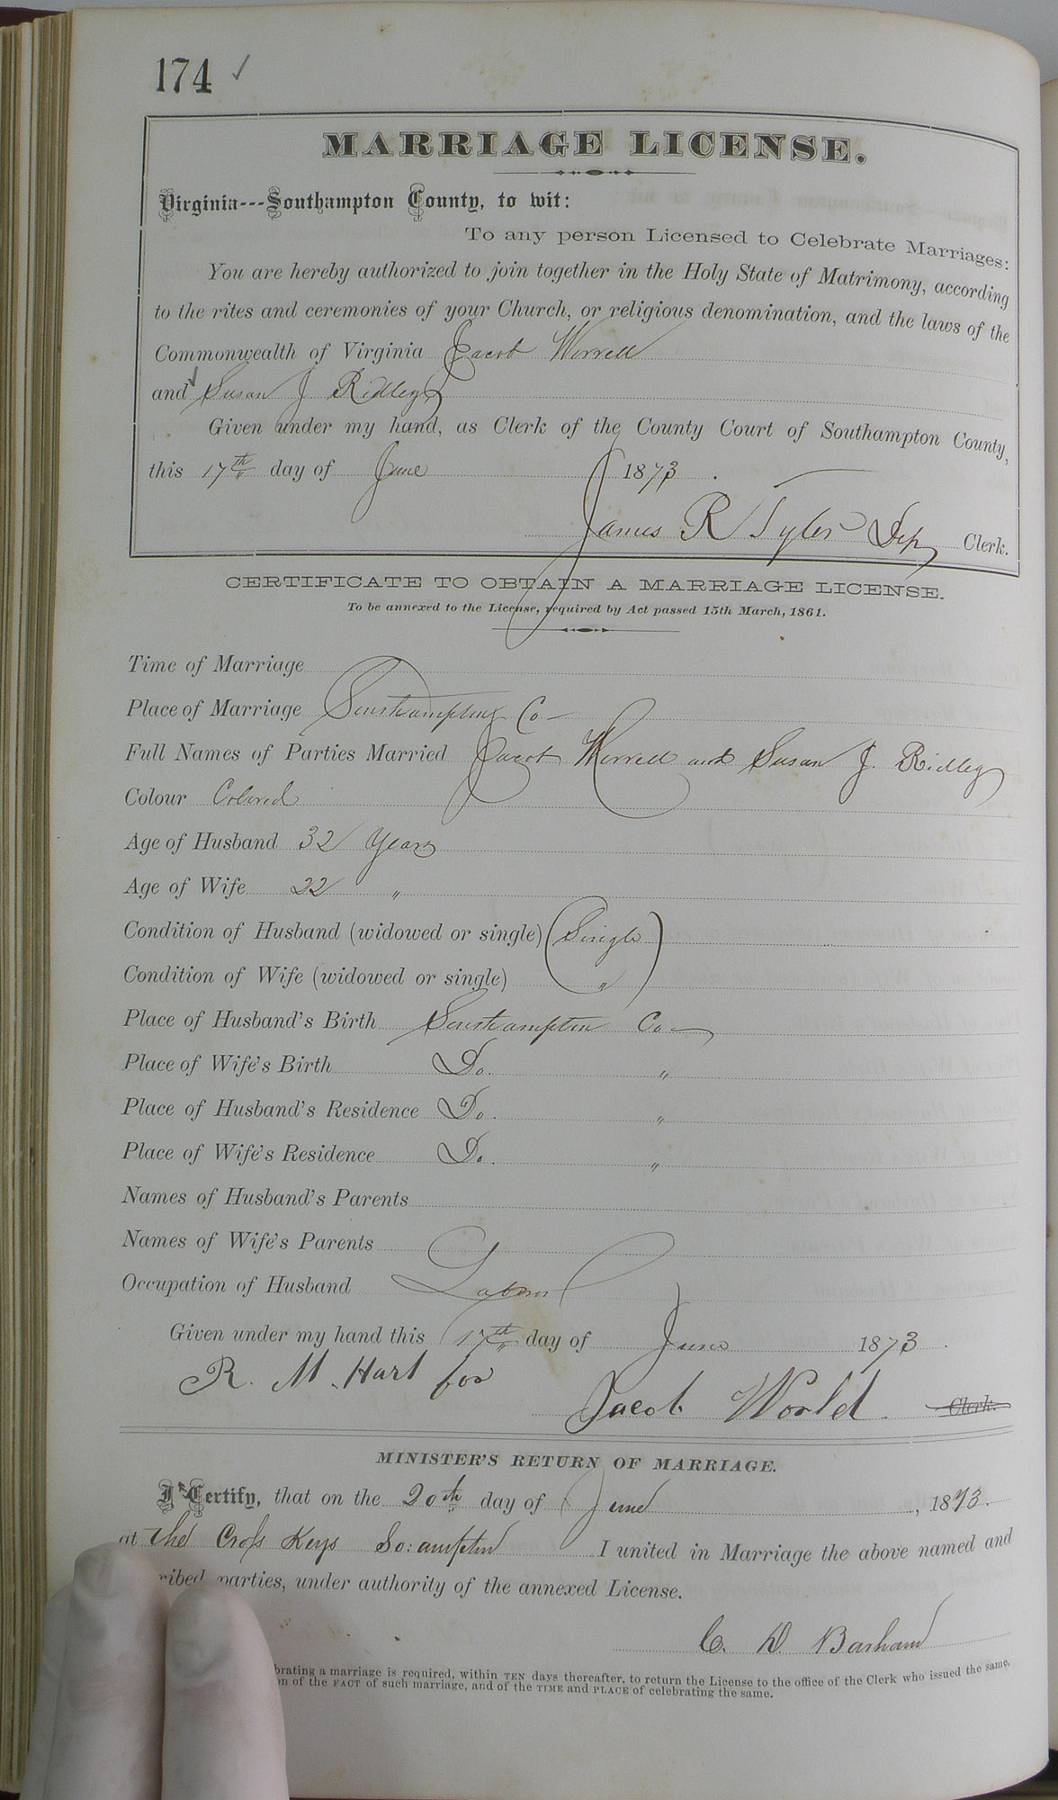 174 ✓
MARRIAGE LICENSE.
Virginia---Southampton County, to wit:
To any person Licensed to Celebrate Marriages:
You are hereby authorized to join together in the Holy State of Matrimony, according
to the rites and ceremonies of your Church, or religious denomination, and the laws of the
Commonwealth of Virginia Jacob Worrell
and Susan J Ridley
Given under my hand, as Clerk of the County Court of Southampton County,
this 17th day of June 1873.
James R Tyler Dep Clerk.
CERTIFICATE TO OBTAIN A MARRIAGE LICENSE.
To be annexed to the License, required by Act passed 15th March, 1861.
Time of Marriage
Place of Marriage Southampton Co
Full Names of Parties Married Jacob Worrell and Susan J. Ridley
Colour Colored
Age of Husband 32 Years
Age of Wife 22 "
Condition of Husband (widowed or single) Single
Condition of Wife (widowed or single) "
Place of Husband's Birth Southampton Co
Place of Wife's Birth Do. "
Place of Husband's Residence Do. "
Place of Wife's Residence Do. "
Names of Husband's Parents
Names of Wife's Parents
Occupation of Husband
Given under my hand this 17th day of June 1873.
R. M. Hart for
Jacob World. Clerk.
MINISTER'S RETURN OF MARRIAGE.
I Certify, that on the 20th day of June, 1873.
at the Cross Keys So:ampton I united in Marriage the above named and
ribed parties, under authority of the annexed License.
C. D. Barham
brating a marriage is required, within TEN days thereafter, to return the License to the office of the Clerk who issued the same,
n of the FACT of such marriage, and of the TIME and PLACE of celebrating the same.